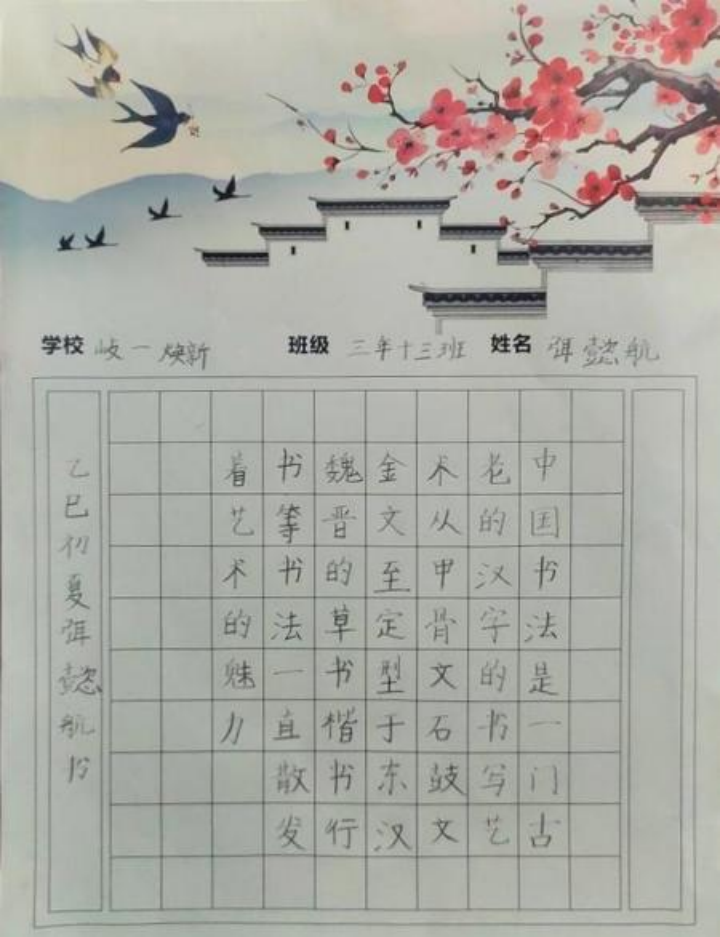 学校 岐一焕新 班级 三年十三班 姓名 弭懿航
中国书法是一门古
老的汉字的书写艺
术从甲骨文石鼓文
金文至定型于东汉
魏晋的草书楷书行
书等书法一直散发
着艺术的魅力
乙巳初夏弭懿航书